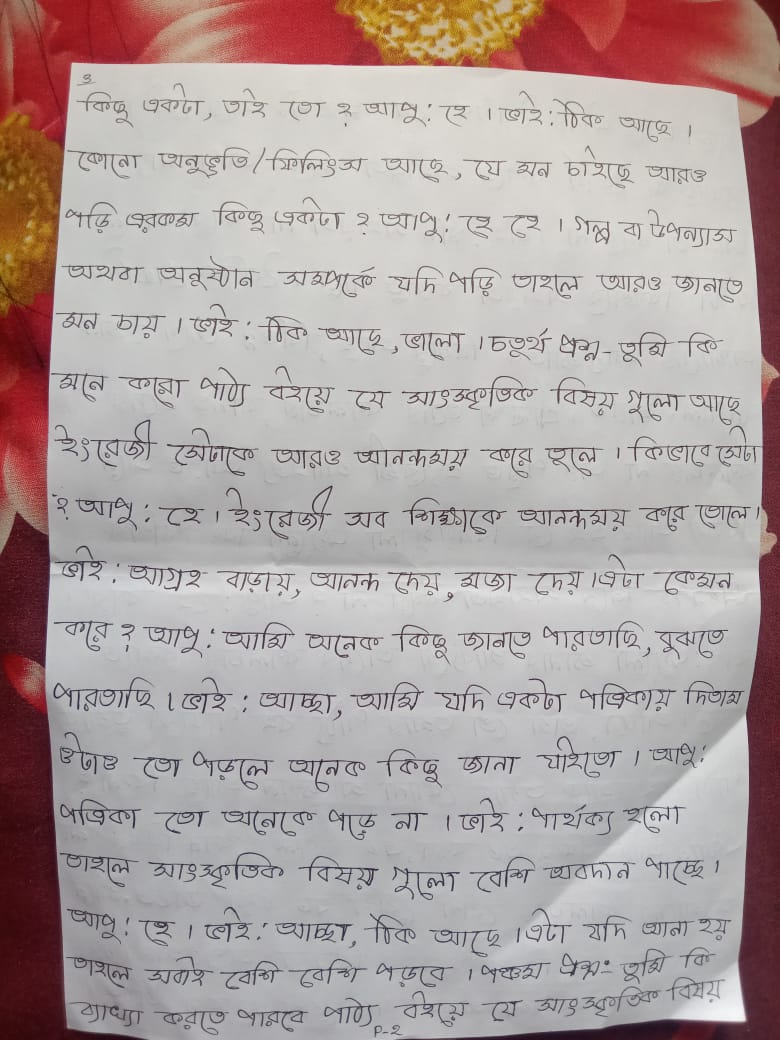 ২
কিছু একটা, তাই তো ? আপু: হে । ভাই: ঠিক আছে ।
কোনো অনুভূতি/ফিলিংস আছে, যে মন চাইছে আরও
পড়ি এরকম কিছু একটা ? আপু: হে হে । গল্প বা উপন্যাস
অথবা অনুষ্ঠান সম্পর্কে যদি পড়ি তাহলে আরও জানতে
মন চায় । ভাই: ঠিক আছে, ভালো । চতুর্থ প্রশ্ন- তুমি কি
মনে করো পাঠ্য বইয়ে যে সাংস্কৃতিক বিষয় গুলো আছে
ইংরেজী সেটাকে আরও আনন্দময় করে তুলে । কিভাবে সেটা
? আপু: হে । ইংরেজী সব শিক্ষাকে আনন্দময় করে তোলে।
ভাই: আগ্রহ বাড়ায়, আনন্দ দেয়, মজা দেয় । এটা কেমন
করে ? আপু: আমি অনেক কিছু জানতে পারতাছি, বুঝতে
পারতাছি । ভাই: আচ্ছা, আমি যদি একটা পত্রিকায় দিতাম
ওটাও তো পড়লে অনেক কিছু জানা যাইতো । আপু:
পত্রিকা তো অনেকে পড়ে না । ভাই: পার্থক্য হলো
তাহলে সাংস্কৃতিক বিষয় গুলো বেশি অবদান পাচ্ছে।
আপু: হে । ভাই: আচ্ছা, ঠিক আছে । এটা যদি আনা হয়
তাহলে সবাই বেশি বেশি পড়বে । পঞ্চম প্রশ্ন:- তুমি কি
ব্যাখ্যা করতে পারবে পাঠ্য বইয়ে যে সাংস্কৃতিক বিষয়
P-2